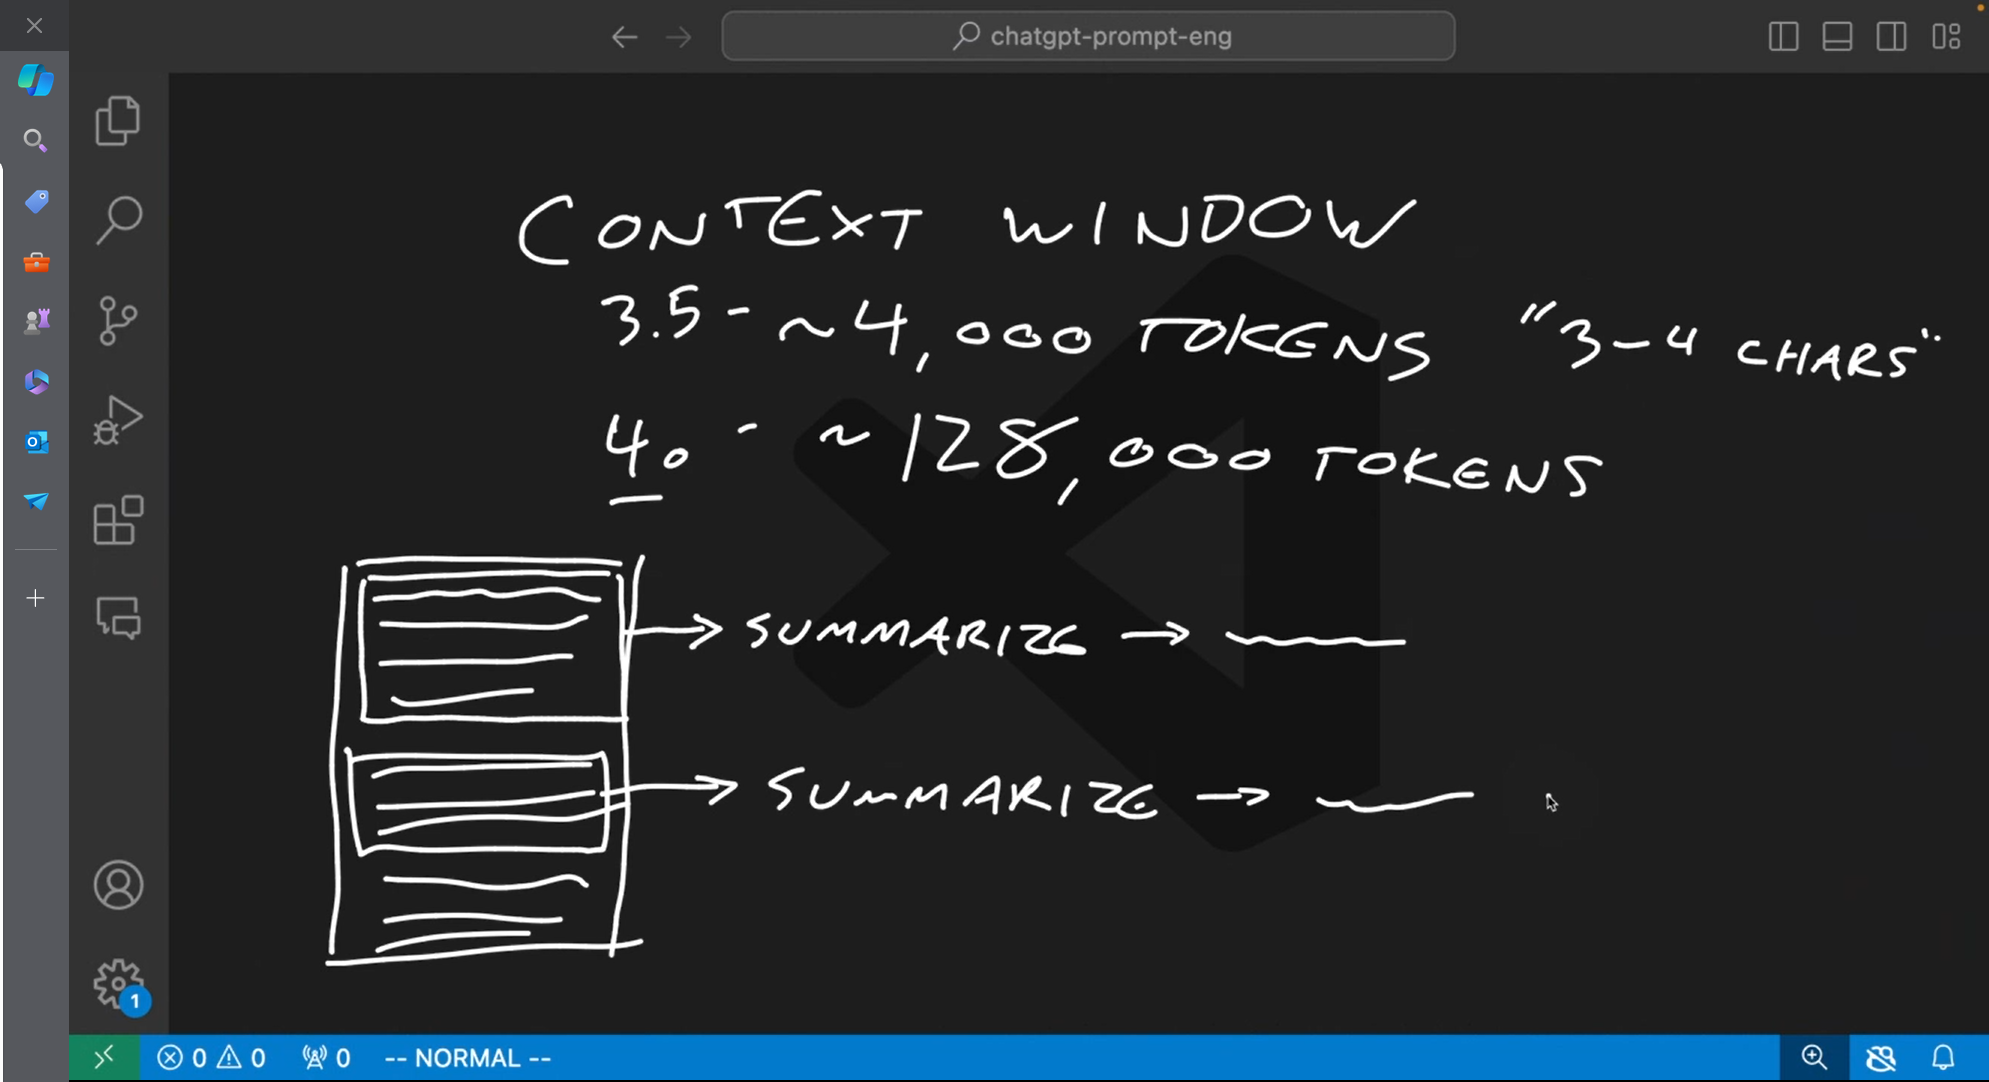 chatgpt-prompt-eng
CONTEXT WINDOW
3.5 - ~4,000 TOKENS "3-4 CHARS"
4o - ~128,000 TOKENS
→ SUMMARIZE →
→ SUMMARIZE →
1
0 0 0 -- NORMAL --